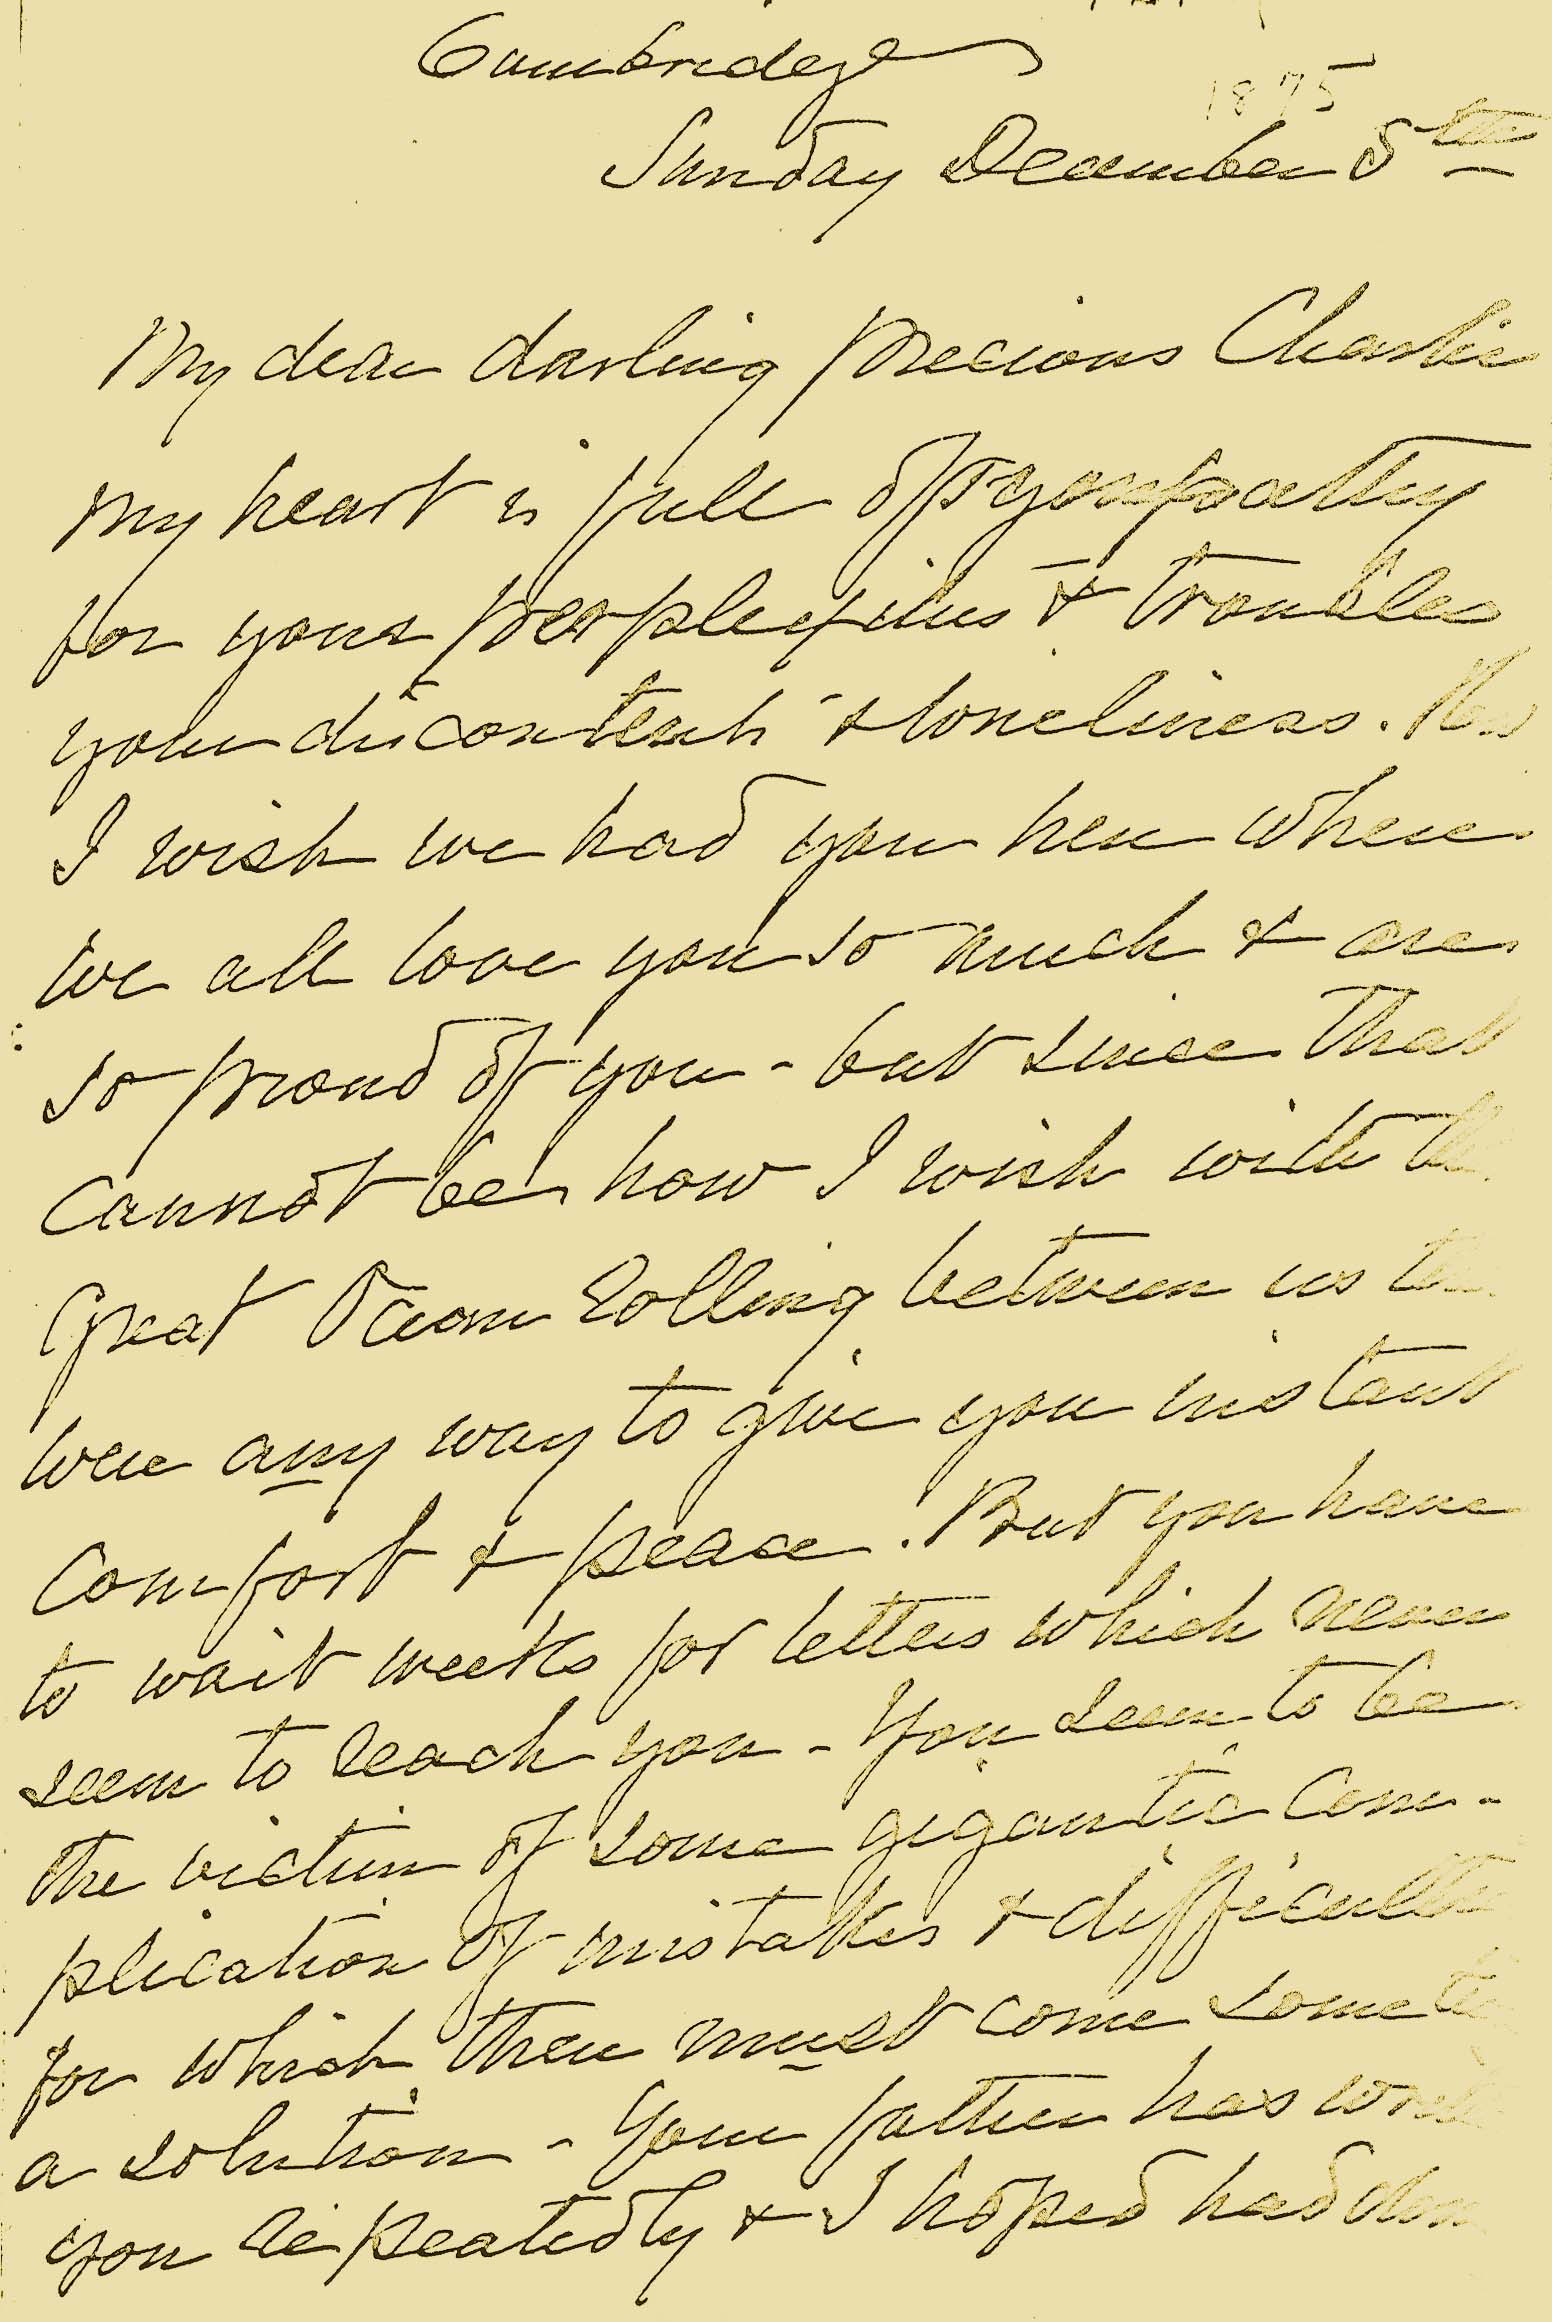 Cambridge
1875
Sunday December 5th
My dear darling precious Charlie
my heart is full of sympathy
for your perplexities & troubles
your discontents & loneliness. How
I wish we had you here where
we all love you so much & are
so proud of you - but since that
cannot be how I wish with the
Great Ocean rolling between us there
were any way to give you instant
comfort & peace. But you have
to wait weeks for letters which never
seem to reach you - You seem to be
the victim of some gigantic com-
plication of mistakes & difficulties
for which there must come some
a solution - Your father has
you repeatedly & I hoped had done